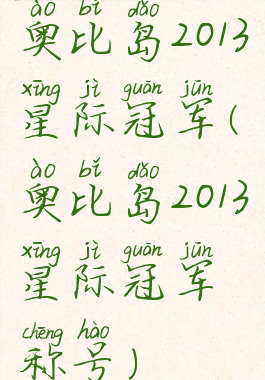 ào bǐ dǎo
奥比岛2013
xīng jì guān jūn
星际冠军(
ào bǐ dǎo
奥比岛2013
xīng jì guān jūn
星际冠军
chēng hào
称号)